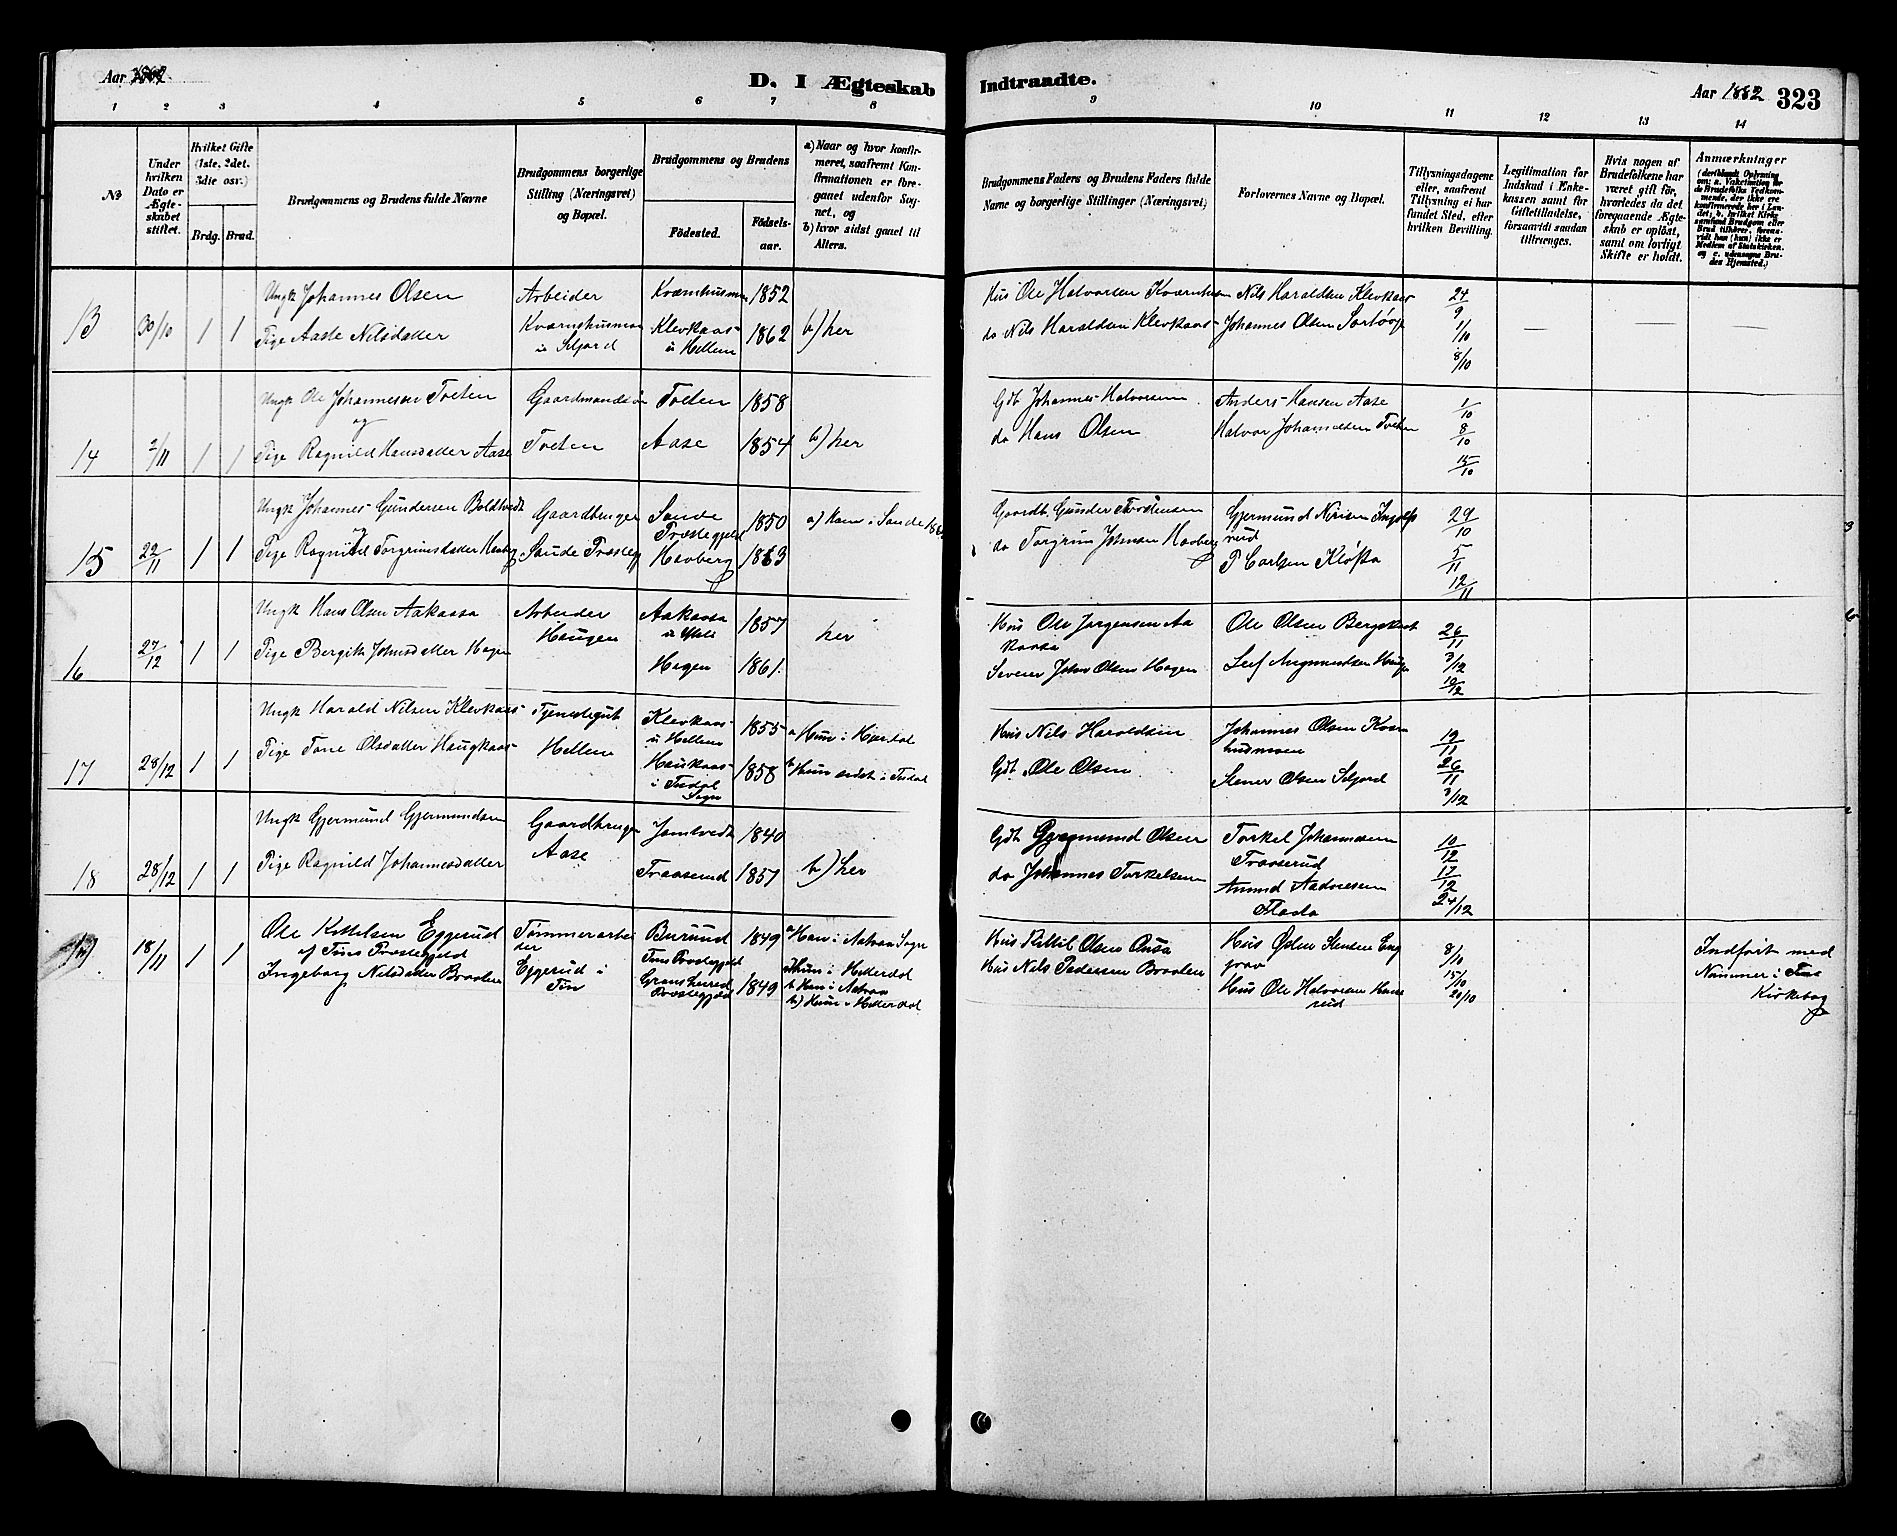 Aar 1882.
D. I Ægteskab Indtraadte.
Aar 1882 323
1 2 3 4 5 6 7 8 9 10 11 12 13 14
No
Under hvilken Dato er Ægteskabet stiftet.
Hvilket Gifte (1ste, 2det, 3die osv.)
Brdg. Brud.
Brudgommens og Brudens fulde Navne
Brudgommens borgerlige Stilling (Næringsvei) og Bopæl.
Brudgommens og Brudens
Fødested.
Fødselsaar.
a) Naar og hvor konfirmeret, saafremt Konfirmationen er foregaaet udenfor Sognet, og
b) hvor sidst gaaet til Alters.
Brudgommens Faders og Brudens Faders fulde Navne og borgerlige Stillinger (Næringsvei)
Forlovernes Navne og Bopæl.
Tillysningsdagene eller, saafremt Tillysning ei har fundet Sted, efter hvilken Bevilling.
Legitimation for Indskud i Enkekassen samt for Giftetilladelse, forsaavidt saadan tiltrænges.
Hvis nogen af Brudefolkene har været gift før, hvorledes da det foregaaende Ægteskab er opløst, samt om lovligt Skifte er holdt.
Anmærkninger
(deriblandt Oplysning om: a. Vaksination for de Brudefolks Vedkommende, der ikke ere konfirmerede her i Landet; b. hvilket Kirkesamfund Brudgom eller Brud tilhører, forsaavidt han (hun) ikke er Medlem af Statskirken, og c. udensogns Brudes Hjemsted.)
13 30/10 1 1
Ungk Johannes Olsen
Pige Aaste Nilsdatter
Arbeider
Kværnhusmoen
i Seljord
Kværnhusmoen 1852
Klevkaas
i Hellem 1862
b) her
Hus Ole Halvorsen Kværnhusm
do Nils Haraldsen Klevkaas
Nils Haraldsen Klevkaas
Johannes Olsen
24/9
1/10
8/10
14 2/11 1 1
Ungk Ole Johannesen Tveten
og
Pige Ragnild Hansdatter Aase
Gaardmandssøn
Tveten
Tveten 1858
Aase 1854
b) her
Gdb Johannes Halvorsen
do Hans Olsen
Anders Hansen Aase
Halvor Johannesen Tveten
1/10
8/10
15/10
15 22/11 1 1
Ungk Johannes Gundersen Boldtvedt
Pige Ragnild Torgrimsdatter Havberg
Gaardbruger
Saude Præsteg
Saude
Præstegjeld 1850
Havberg 1863
a) Ham i Saude
Gaardb. Gunder Torstensen
do Torgrim Johnsen Havberg
Gjermund Nirisen Ingolfs
rud
P Carlsen Kløfta
29/10
5/11
12/11
16 27/12 1 1
Ungk Hans Olsen Aakaasa
Pige Bergit Johnsdatter Hagen
Arbeider
Haugen
Aakaasa 1857
Hagen 1861.
her
Hus Ole Jørgensen Aa
kaasa
John Olsen Hagen
Ole Olsen
26/11
3/12
10/12
17 28/12 1 1
Ungk Harald Nilsen Klevkaas
Pige Tone Olsdatter Haugkaas
Tjenestegut
Hellem
Klevkaas
i Hellem 1855
Haukaas
i Tudal
Sogn 1858
a Hun i Hjerdal
b Hun sidst i Tudal
Hus Nils Haroldsen
Gdb. Ole Olsen
Johannes Olsen Kværn
husmoen
Stener Olsen Seljord
19/11
26/11
3/12
18 28/12 1 1
Ungk Gjermund Gjermundsen
Pige Ragnild Johannesdatter
Gaardbruger
Aase
Jamtvedt 1840
Traaserud 1857
b) her
Gdb Gjermund Olsen
do Johannes Torkelsen
Torkel Johannesen
Traaserud
Amund Aadnesen
Flada
10/12
17/12
24/12
18/11 1 1
Ole Kittelsen Eggerud
af Tins Præstegjeld
Ingeborg Nilsdatter Braaten
Tømmerarbei
der
Eggerud i
Tin
Burund
Tins Præstegjeld 1849
Gransherred
Præstegjeld 1849
a Han i Aatraa Sogn
Hun i Hitterdal
b Han i Aatraa
b) Hun i Hitterdal
Hus Kittil Olsen
Hus Nils Pedersen Braaten
Hus Østen Stensen Eng
grav
Hus Ole Halvorsen
rud
8/10
15/10
20/10
Indført med
Nummer i Tins
Kirkebog